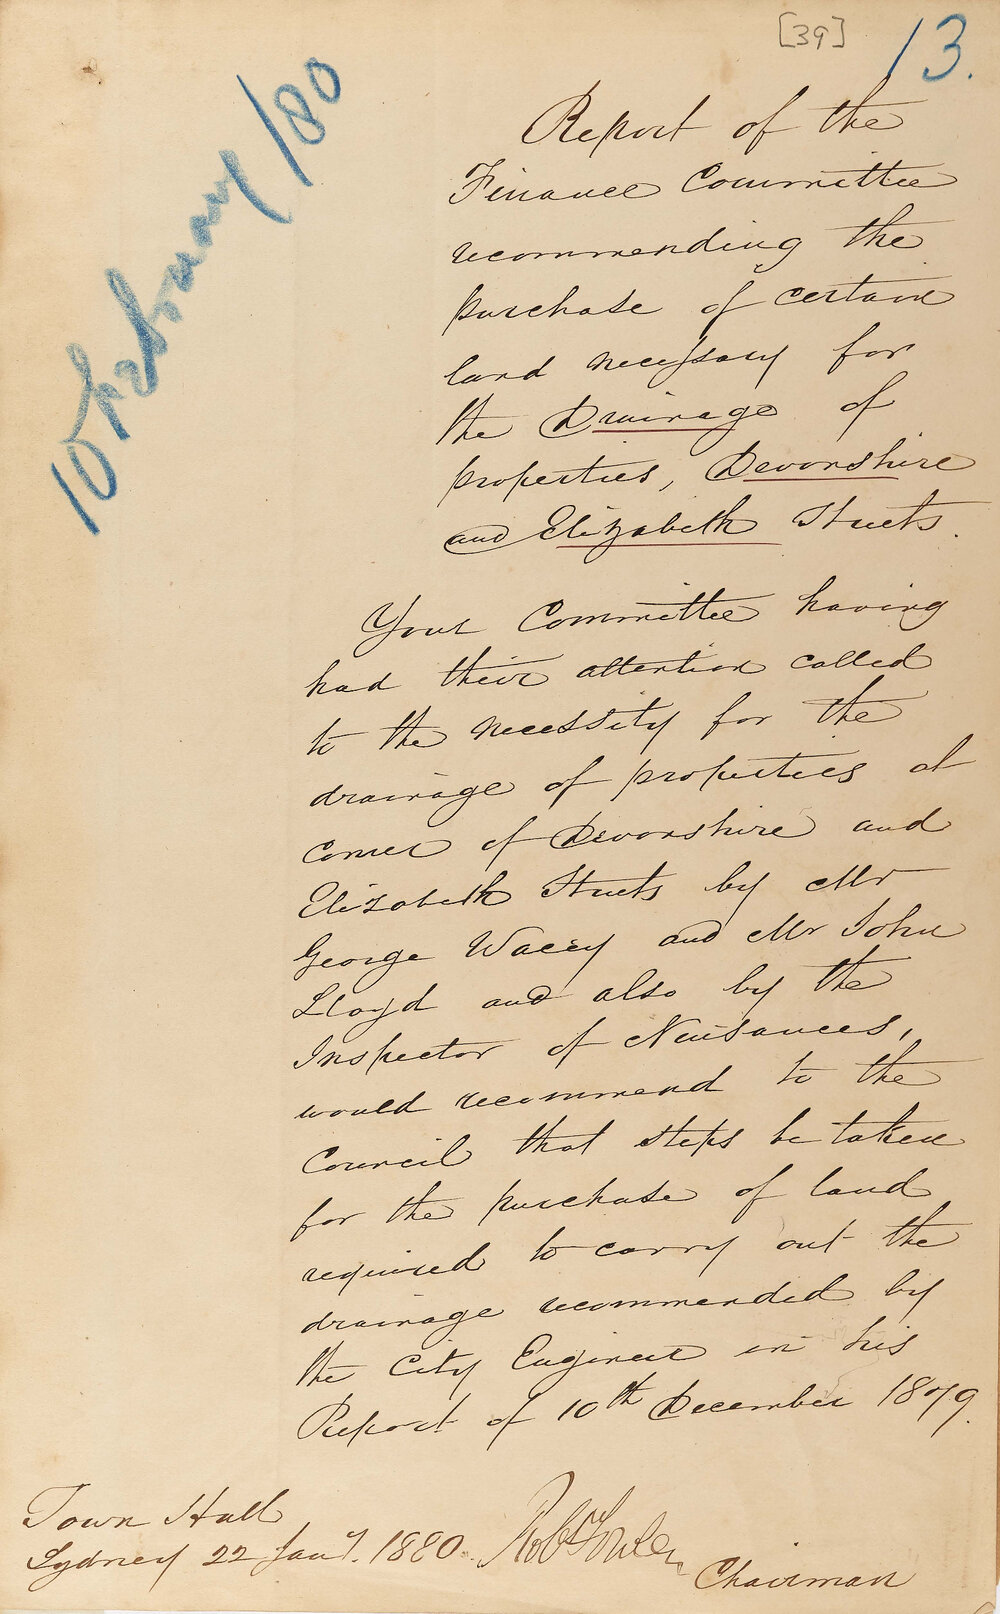 [39]
13.
10 February /80
Report of the
Finance Committee
recommending the
purchase of certain
land necessary for
the Drainage of
properties, Devonshire
and Elizabeth Streets.
Your Committee having
had their attention called
to the necessity for the
drainage of properties at
corner of Devonshire and
Elizabeth Streets by Mr
George Wacey and Mr John
Lloyd and also by the
Inspector of Nuisances,
would recommend to the
Council that steps be taken
for the purchase of land
required to carry out the
drainage recommended by
the City Engineer in his
Report of 10th December 1879.
Town Hall
Sydney 22 Jany. 1880.
Robt Fowler
Chairman